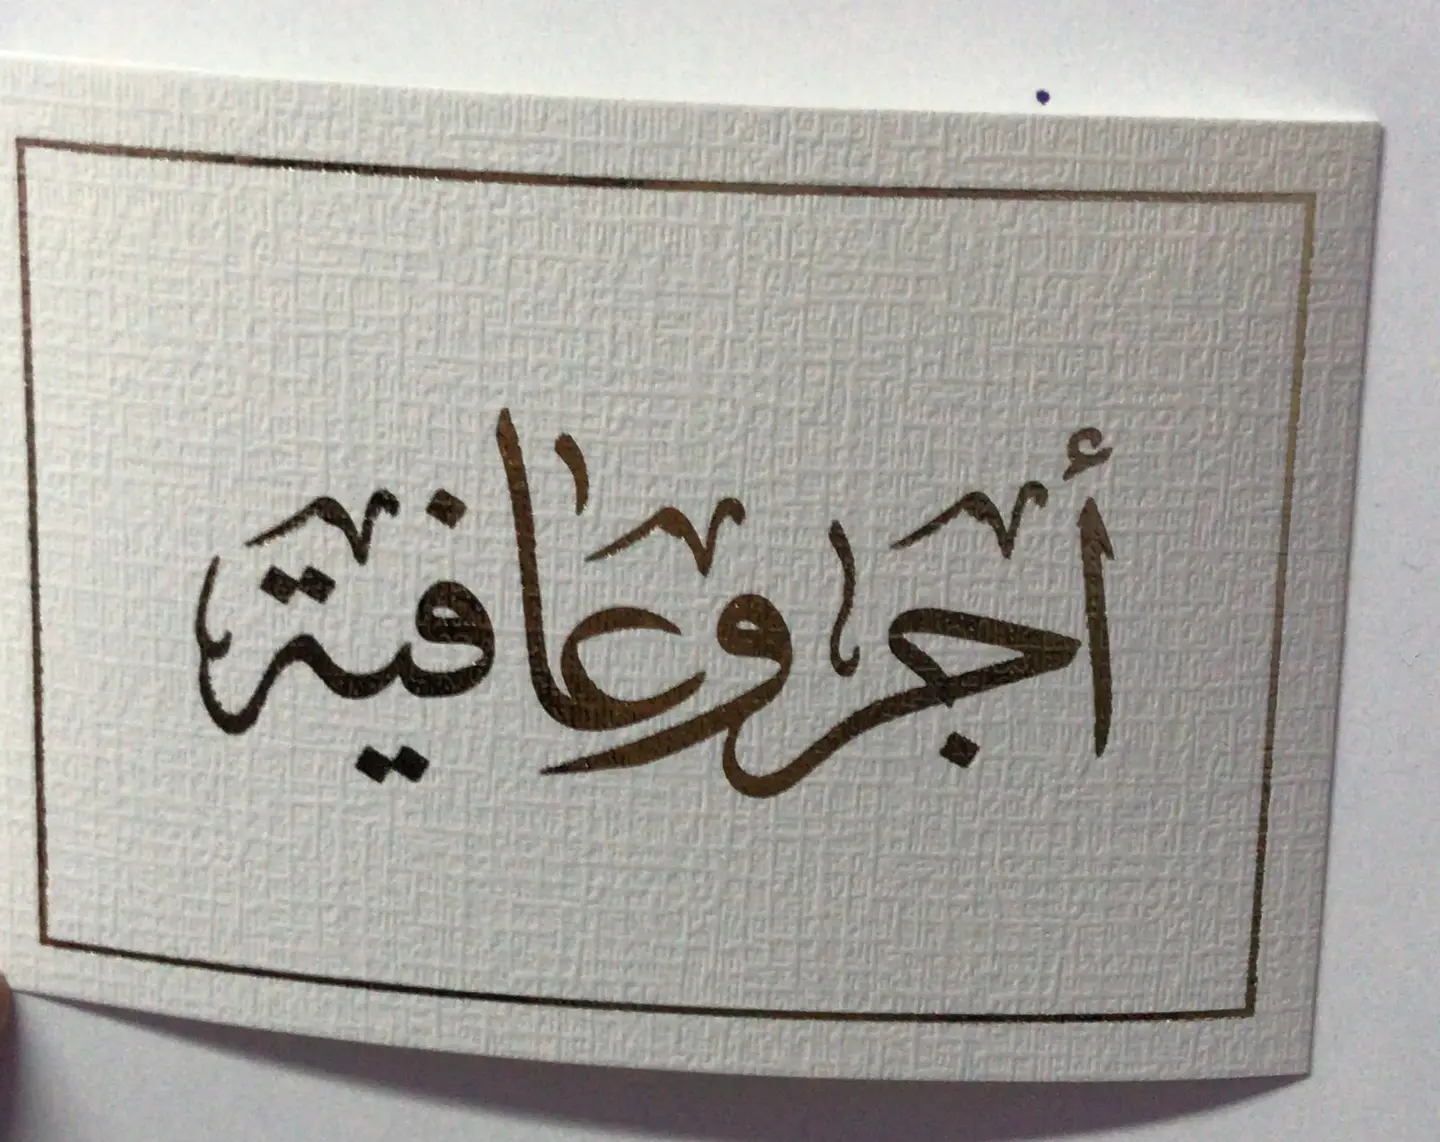 أجر وعافية